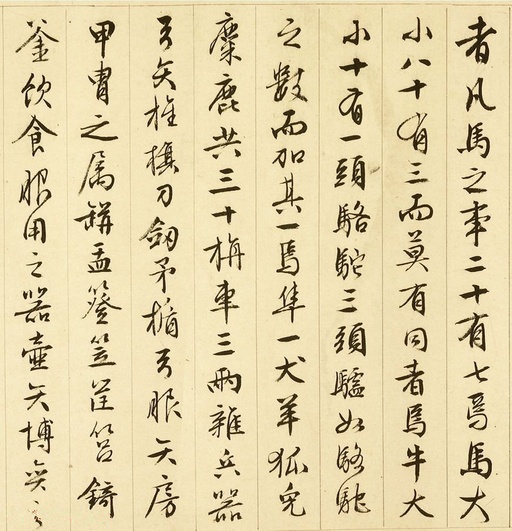 者凡馬之事二十有七焉馬大
小八十有三而莫有同者焉牛大
小十有一頭駱駝三頭驢如駱駝
之數而加其一焉隼一犬羊狐兔
麋鹿共三十旃車三兩雜兵器
弓矢旌旗刀劔矛楯弓服矢房
甲胄之屬缾盂簦笠筐筥錡
釜飲食服用之器壺矢博奕之